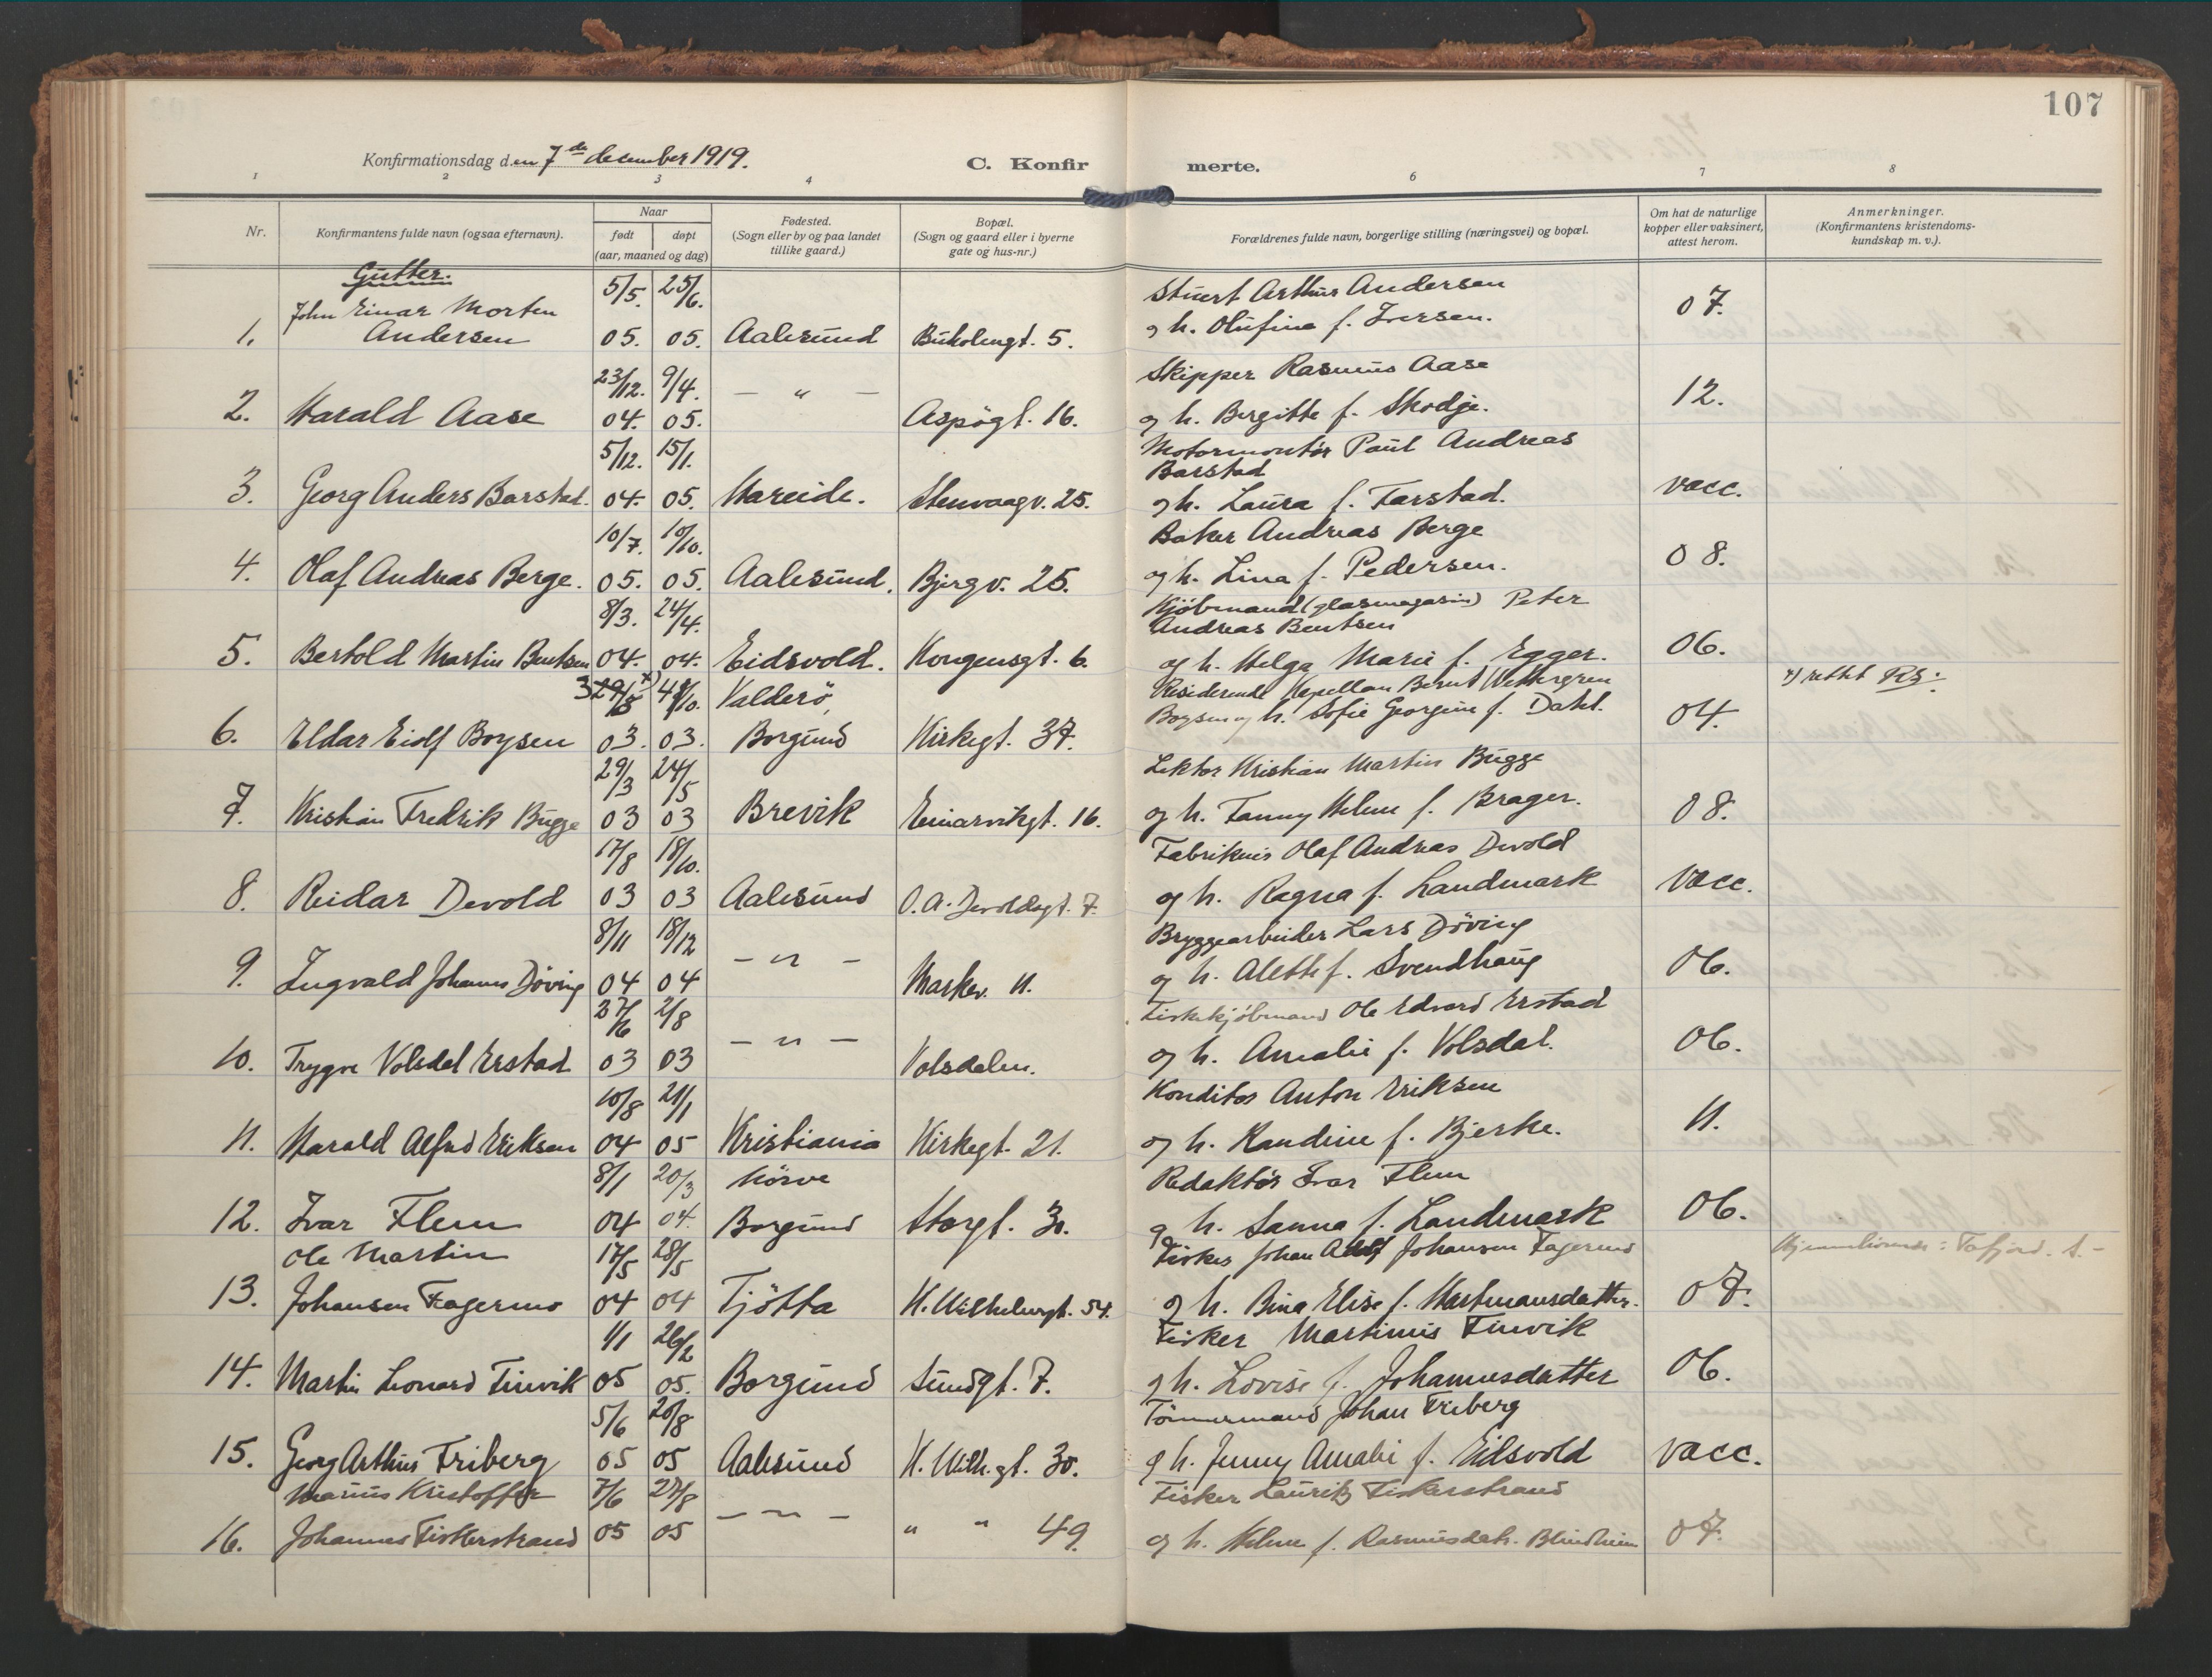 107
Konfirmationsdag den 7de desember 1919.
C. Konfirmerte.
1 2 3 4 6 7 8
Nr.
Konfirmantens fulde navn (ogsaa efternavn).
Naar
født døpt
(aar, maaned og dag)
Fødested.
(Sogn eller by og paa landet
tillike gaard.)
Bopæl.
(Sogn og gaard eller i byerne
gate og hus-nr.)
Forældrenes fulde navn, borgerlige stilling (næringsvei) og bopæl.
Om hat de naturlige
kopper eller vaksinert,
attest herom.
Anmerkninger.
(Konfirmantens kristendoms-
kundskap m. v.).
Gutter.
John Einar Morten 5/5. 25/6. Stuert Arthur Andersen
1. Andersen 05. 05. Aalesund Bukolmgt. 5. og h. Olufine f. Iversen. 07.
23/12. 9/4. — " — Skipper Rasmus Aase
2. Harald Aase 04. 05. Aspøgt. 16. og h. Bergitte f. Skodje. 12.
5/12. 15/1. Motormontør Paul Andreas
Barstad
3. Georg Anders Barstad. 04. 05. Hareide. Stenvaagv. 25. og h. Laura f. Tarstad. vacc.
10/7. 10/10. Baker Andreas Berge
4. Olaf Andreas Berge. 05. 05. Aalesund. Bjergv. 25. og h. Lina f. Pedersen. 08.
8/3. 24/4. Kjøbmand (glasmagasin) Peter
Andreas Bentsen
5. Bertold Martin Bentsen 04. 04. Eidsvold. Kongensgt. 6. og h. Helga Marie f. Egger. 06.
Valderö, Residerende Kapellan Bernt Wettergren x) rettet
6. Eldar Eiolf Boysen 03. 03. Borgund Kirkegt. 37. Boysen og h. Sofie Georgine f. Dahl. 04.
29/3 24/5 Lektor Kristian Martin Bugge
7. Kristian Fredrik Bugge 03 03 Brevik Einarvikgt. 16. og h. Fanny Helene f. Brager. 08.
17/8 18/10. Fabrikeier Olaf Andreas Devold
8. Reidar Devold 03 03 Aalesund O.A. Devoldsgt. 7. og h. Ragna f. Landmark vacc.
8/11 18/12 — " — Bryggearbeider Lars Døving
9. Ingvald Johannes Døving 04 04 Markev. 11. og h. Alette f. Svendhaug 06.
2/8 — " — Fiskekjøbmand Ole Edvard Erstad
10. Trygve Volsdal Erstad 03 03 Volsdalen. og h. Amalie f. Volsdal. 06.
10/8 21/1 Konditor Anton Eriksen
11. Harald Alfred Eriksen 04 05 Kristiania Kirkegt. 21. og h. Randine f. Bjerke. 11.
8/1 20/3 Nörve Redaktør Ivar Flem
12. Ivar Flem 04 04. Borgund Storgt. 30. og h. Sanna f. Landmark 06.
Ole Martin 17/5 28/5 Fisker Johan Adolf Johansen Fagermo Tafjord.
13. Johansen Fagermo 04 04 Tjötta K. Wilhelmsgt. 54. og h. Bina Elise f. Hartmansdatter. 07.
1/1 26/2 Fisker Martinus Finvik
14. Martin Leonard Finvik 05 05. Borgund Sundgt. 7. og h. Lovise f. Johannesdatter 06.
5/6 20/8 Tömmermand Johan Friberg
15. Georg Arthur Friberg 05 05 Aalesund K. Wilh.gt. 30. og h. Jenny Amalie f. Eidsvold vacc.
Marius Kristoffer 7/6 27/8 — " — Fisker Laurits Fiskerstrand
16. Johannes Fiskerstrand 05 05 " " 49. og h. Helene f. Rasmusdatr. Blindheim 07.